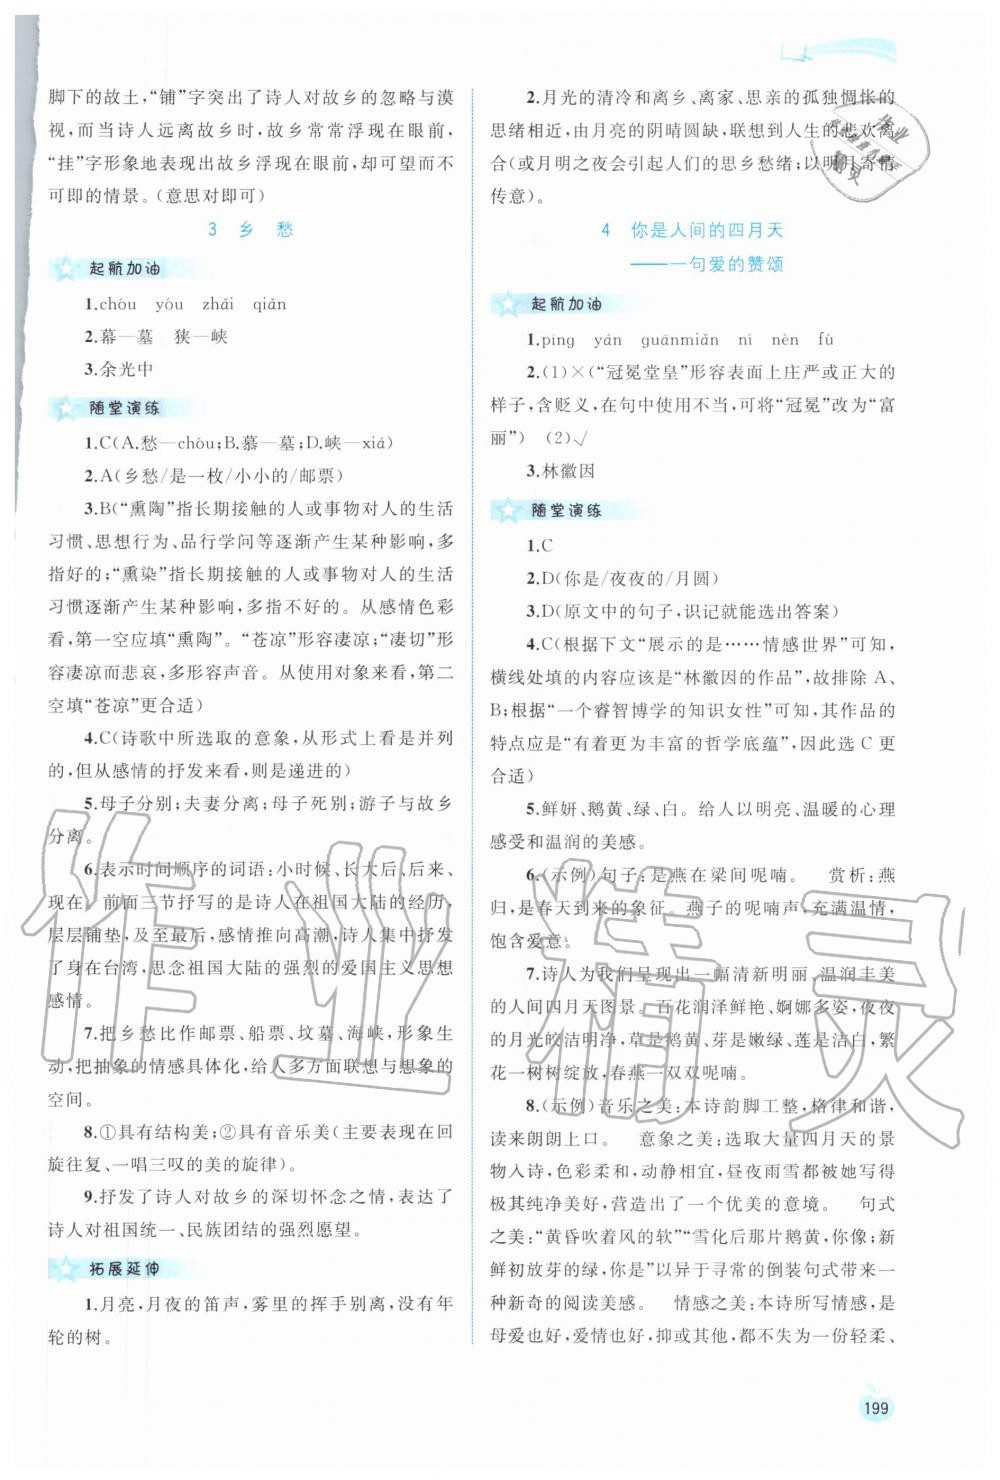 脚下的故土,“铺”字突出了诗人对故乡的忽略与漠
视,而当诗人远离故乡时,故乡常常浮现在眼前,
“挂”字形象地表现出故乡浮现在眼前,却可望而不
可即的情景。(意思对即可)
3 乡 愁
起航加油
1.chóu yóu zhǎi qiǎn
2.幕—墓 狭—峡
3.余光中
随堂演练
1.C(A.愁—chóu;B.慕—墓;D.峡—xiá)
2.A(乡愁/是一枚/小小的/邮票)
3.B(“熏陶”指长期接触的人或事物对人的生活
习惯、思想行为、品行学问等逐渐产生某种影响,多
指好的;“熏染”指长期接触的人或事物对人的生活
习惯逐渐产生某种影响,多指不好的。从感情色彩
看,第一空应填“熏陶”。“苍凉”形容凄凉;“凄切”形
容凄凉而悲哀,多形容声音。从使用对象来看,第二
空填“苍凉”更合适)
4.C(诗歌中所选取的意象,从形式上看是并列
的,但从感情的抒发来看,则是递进的)
5.母子分别;夫妻分离;母子死别;游子与故乡
分离。
6.表示时间顺序的词语:小时候、长大后、后来、
现在。 前面三节抒写的是诗人在祖国大陆的经历,
层层铺垫,及至最后,感情推向高潮,诗人集中抒发
了身在台湾,思念祖国大陆的强烈的爱国主义思想
感情。
7.把乡愁比作邮票、船票、坟墓、海峡,形象生
动,使抽象的情感具体化,给人多方面联想与想象的
空间。
8.①具有结构美;②具有音乐美(主要表现在回
旋往复、一唱三叹的美的旋律)。
9.抒发了诗人对故乡的深切怀念之情,表达了
诗人对祖国统一、民族团结的强烈愿望。
拓展延伸
1.月亮,月夜的笛声,雾里的挥手别离,没有年
轮的树。
2.月光的清冷和离乡、离家、思亲的孤独惆怅的
思绪相近,由月亮的阴晴圆缺,联想到人生的悲欢离
合(或月明之夜会引起人们的思乡愁绪;以明月寄情
传意)。
4 你是人间的四月天
———一句爱的赞颂
起航加油
1.pīng yán guānmiǎn nǐ nèn fú
2.(1)×(“冠冕堂皇”形容表面上庄严或正大的
样子,含贬义,在句中使用不当,可将“冠冕”改为“富
丽”) (2)√
3.林徽因
随堂演练
1.C
2.D(你是/夜夜的/月圆)
3.D(原文中的句子,识记就能选出答案)
4.C(根据下文“展示的是……情感世界”可知,
横线处填的内容应该是“林徽因的作品”,故排除 A、
B;根据“一个睿智博学的知识女性”可知,其作品的
特点应是“有着更为丰富的哲学底蕴”,因此选 C 更
合适)
5.鲜妍、鹅黄、绿、白。给人以明亮、温暖的心理
感受和温润的美感。
6.(示例)句子:是燕在梁间呢喃。 赏析:燕
归,是春天到来的象征。燕子的呢喃声,充满温情,
饱含爱意。
7.诗人为我们呈现出一幅清新明丽,温润丰美
的人间四月天图景。百花润泽鲜艳、婀娜多姿,夜夜
的月光皎洁明净,草是鹅黄、芽是嫩绿、莲是洁白,繁
花一树树绽放,春燕一双双呢喃。
8.(示例)音乐之美:本诗韵脚工整,格律和谐,
读来朗朗上口。 意象之美:选取大量四月天的景
物入诗,色彩缤纷,动静相宜,昼夜雨雪都被她写得
极其纯净美好,营造出了一个优美的意境。 句式
之美:“黄昏吹着风的软”“雪化后那片鹅黄,你像;新
鲜初放芽的绿,你是”以异于寻常的倒装句式带来一
种新奇的阅读美感。 情感之美:本诗所写情感,是
母爱也好,爱情也好,抑或其他,都不失为一份轻柔、
199
作业精灵